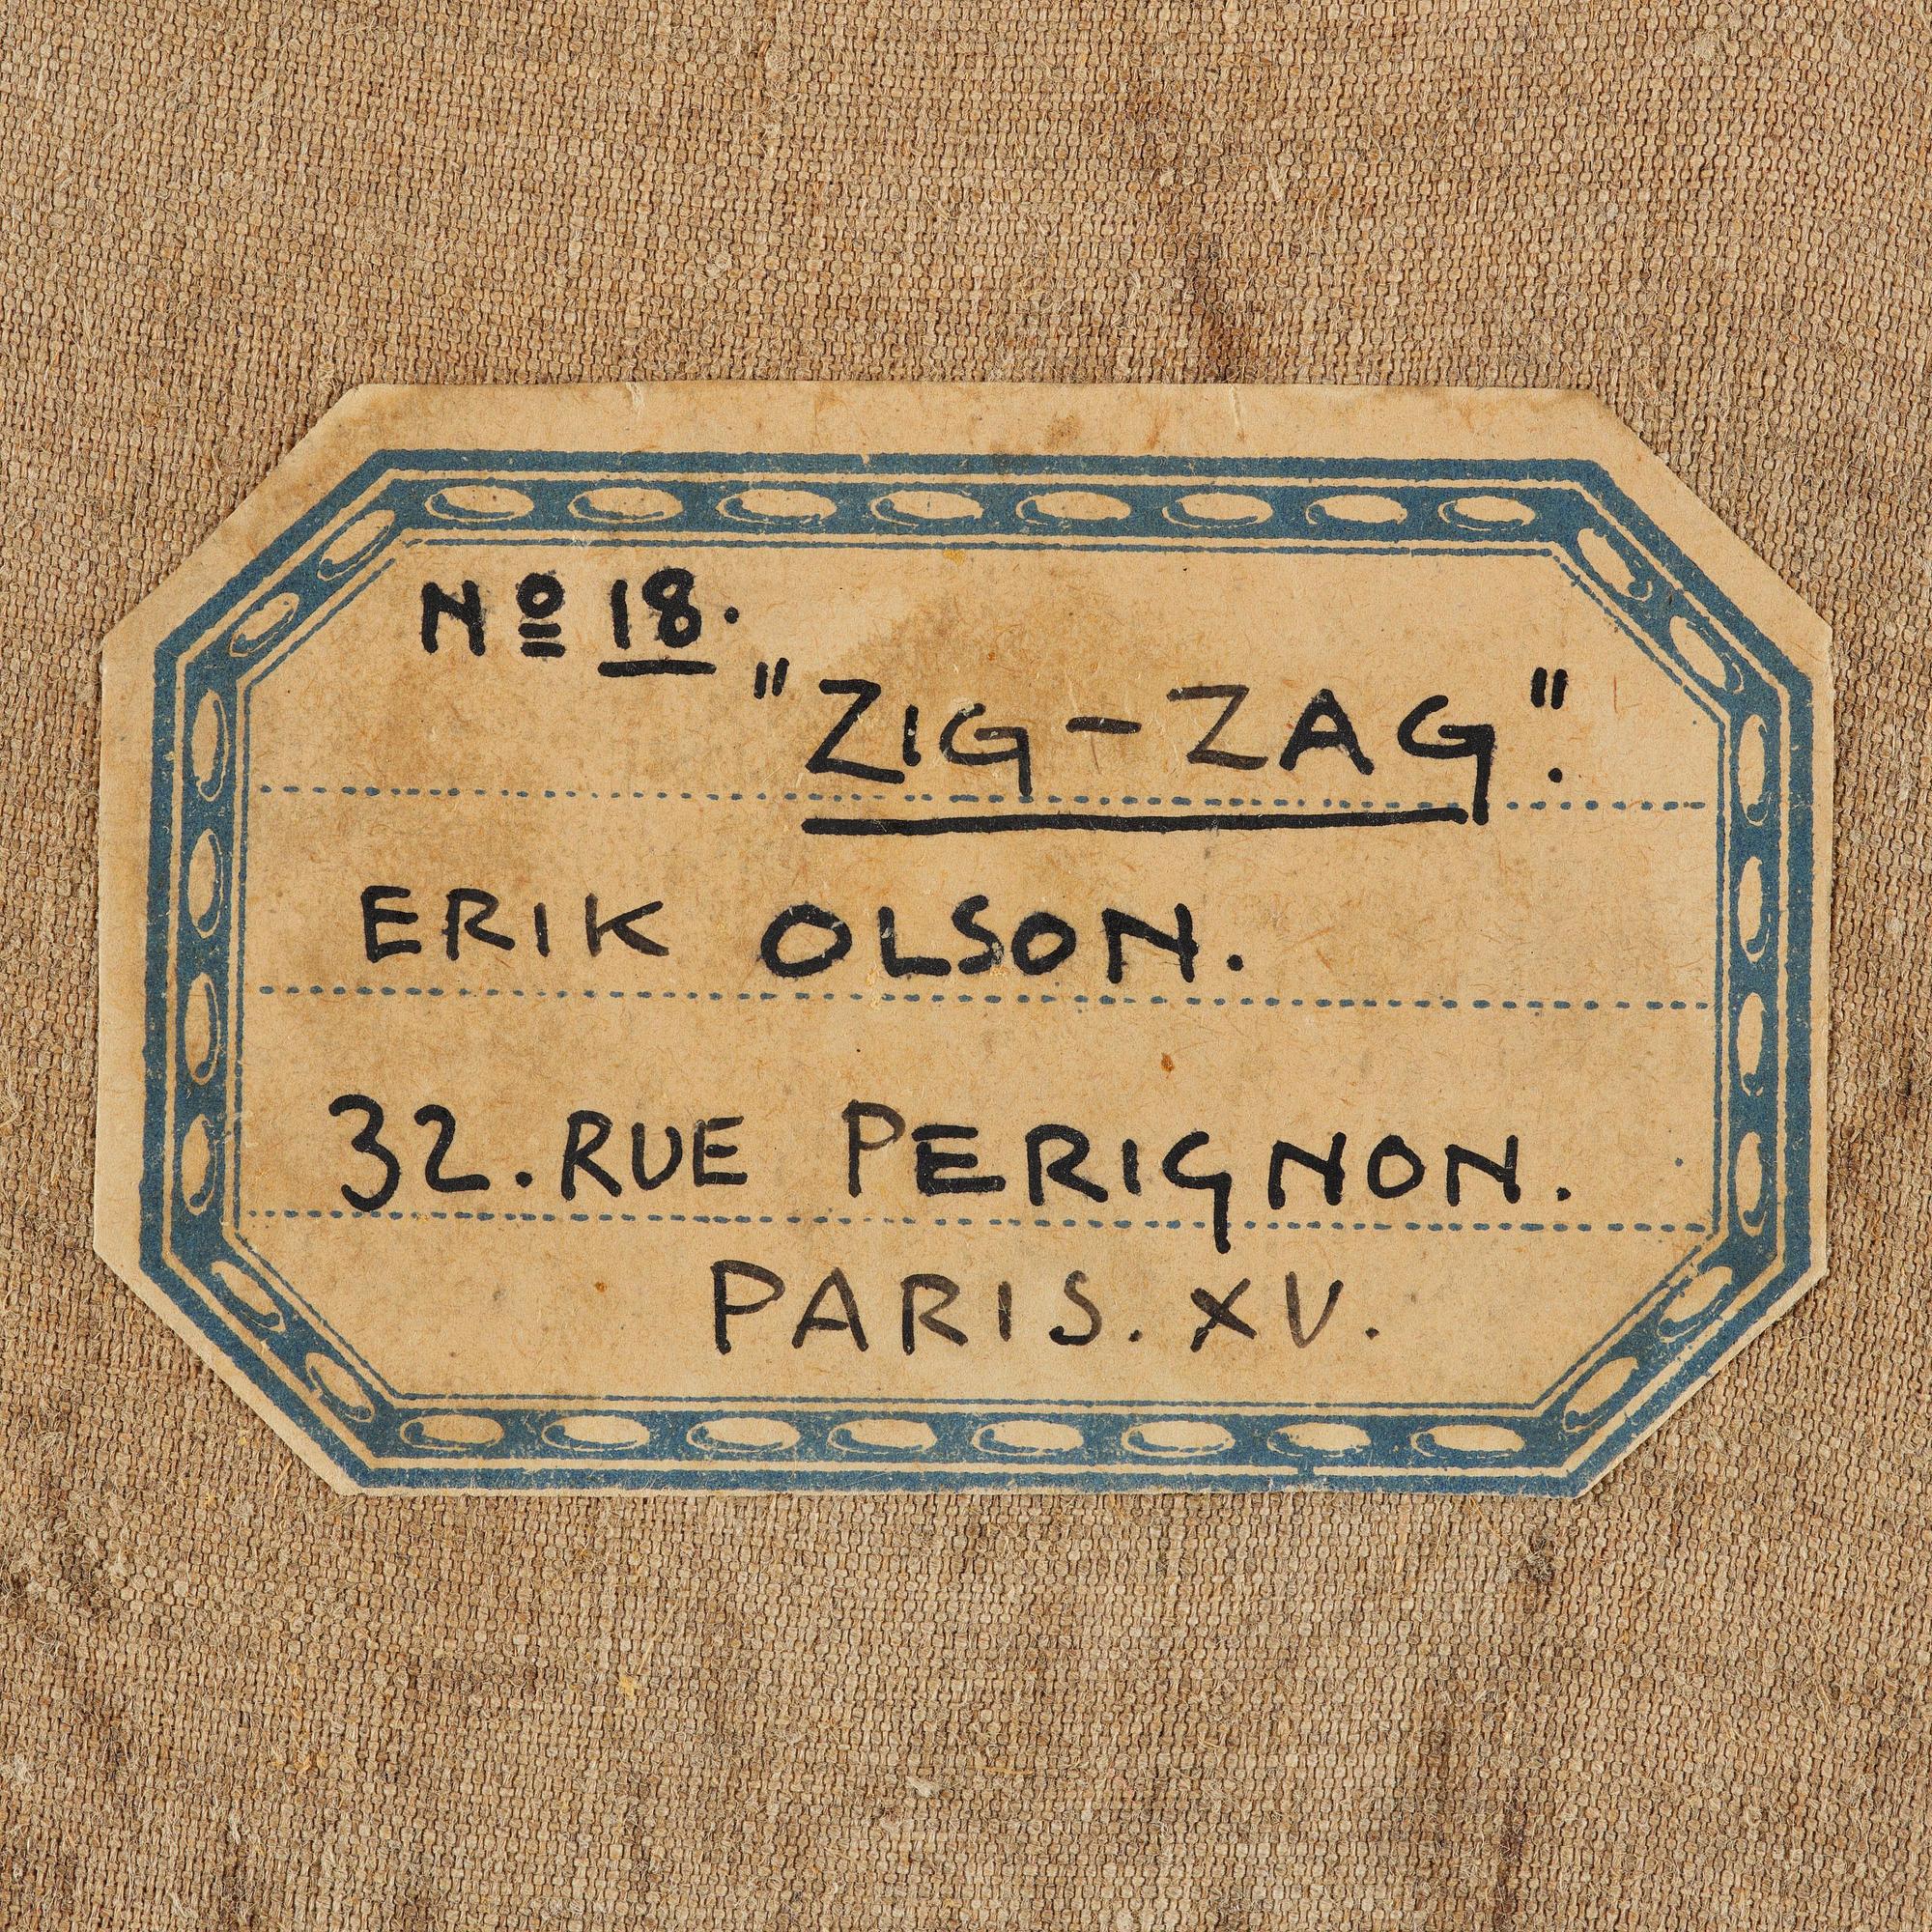 Nº 18.
"ZIG-ZAG".
ERIK OLSON.
32. RUE PERIGNON.
PARIS. XV.